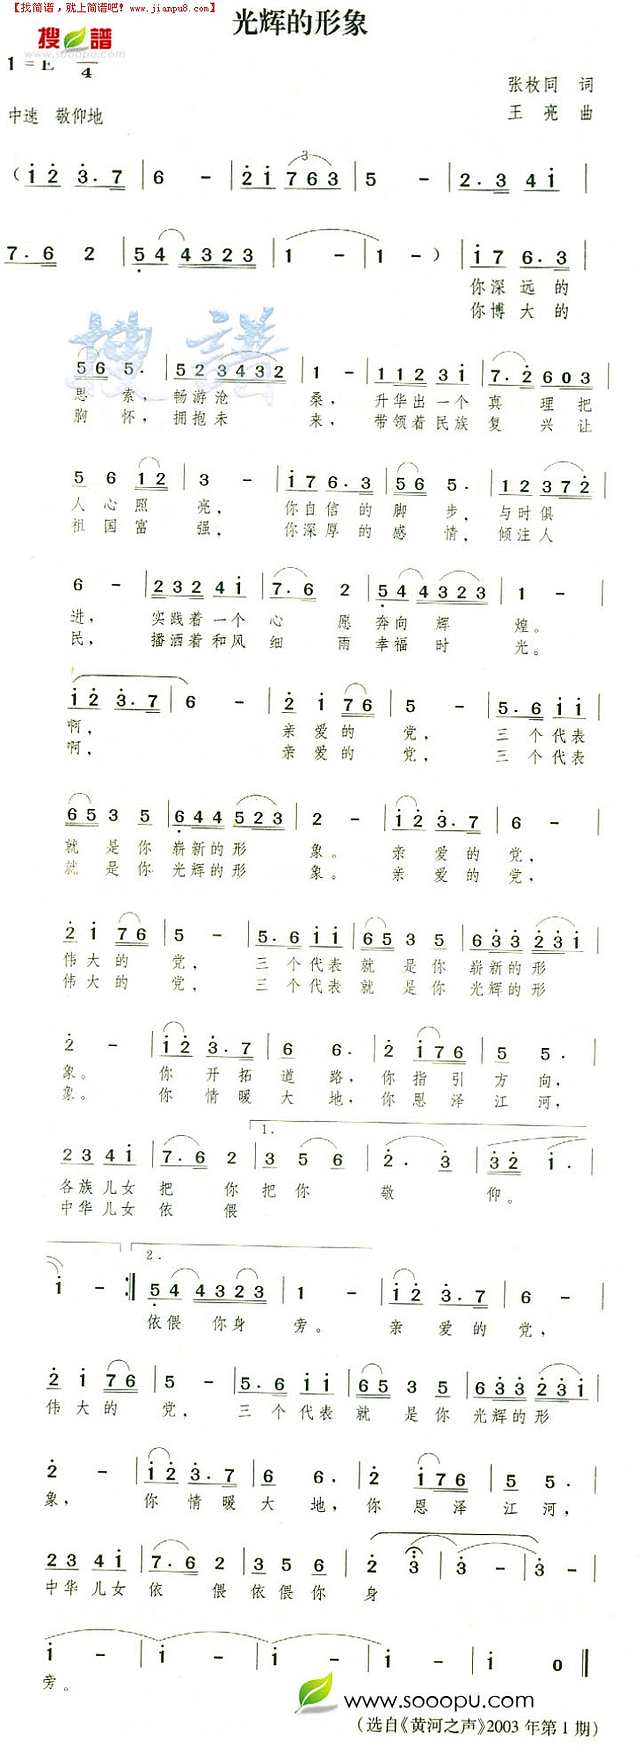 【找简谱，就上简谱吧！www.jianpu8.com】
光辉的形象
搜譜
www.sooopu.com
1=E /4
张枚同 词
中速 敬仰地
王亮 曲
(1 2 3.7 | 6 - | 2 1 7 6 3 | 5 - | 2.3 4 1 |
3
7.6 2 | 5 4 4 3 2 3 | 1 - | 1 - ) | 1 7 6.3 |
你深远的
你博大的
搜譜
5 6 5. | 5 2 3 4 3 2 | 1 - | 1 1 2 3 1 | 7.2 6 0 3 |
思索，畅游沧桑，升华出一个真理把
胸怀，拥抱未来，带领着民族复兴让
5 6 1 2 | 3 - | 1 7 6.3 | 5 6 5. | 1 2 3 7 2 |
人心照亮，你自信的脚步，与时俱
祖国富强，你深厚的感情，倾注人
6 - | 2 3 2 4 1 | 7.6 2 | 5 4 4 3 2 3 | 1 - |
进，实践着一个心愿奔向辉煌。
民，播洒着和风细雨幸福时光。
1 2 3.7 | 6 - | 2 1 7 6 | 5 - | 5.6 1 1 |
啊，亲爱的党，三个代表
啊，亲爱的党，三个代表
6 5 3 5 | 6 4 4 5 2 3 | 2 - | 1 2 3.7 | 6 - |
就是你崭新的形象。亲爱的党，
就是你光辉的形象。亲爱的党，
2 1 7 6 | 5 - | 5.6 1 1 | 6 5 3 5 | 6 3 3 2 3 1 |
伟大的党，三个代表就是你崭新的形
伟大的党，三个代表就是你光辉的形
2 - | 1 2 3.7 | 6 6. | 2 1 7 6 | 5 5. |
象。你开拓道路，你指引方向，
象。你情暖大地，你恩泽江河，
1.
2 3 4 1 | 7.6 2 | 3 5 6 | 2. 3 | 3 2 1. |
各族儿女把你把你敬仰。
中华儿女依偎
2.
1 - :|| 5 4 4 3 2 3 | 1 - | 1 2 3.7 | 6 - |
依偎你身旁。亲爱的党，
2 1 7 6 | 5 - | 5.6 1 1 | 6 5 3 5 | 6 3 3 2 3 1 |
伟大的党，三个代表就是你光辉的形
2 - | 1 2 3.7 | 6 6. | 2 1 7 6 | 5 5. |
象，你情暖大地，你恩泽江河，
2 3 4 1 | 7.6 2 | 3 5 6 | 2 3 | 3 - | 3 - |
中华儿女依偎依偎你身
1 - | 1 - | 1 - | 1 - | 1 0 ||
旁。
www.sooopu.com
(选自《黄河之声》2003年第1期)